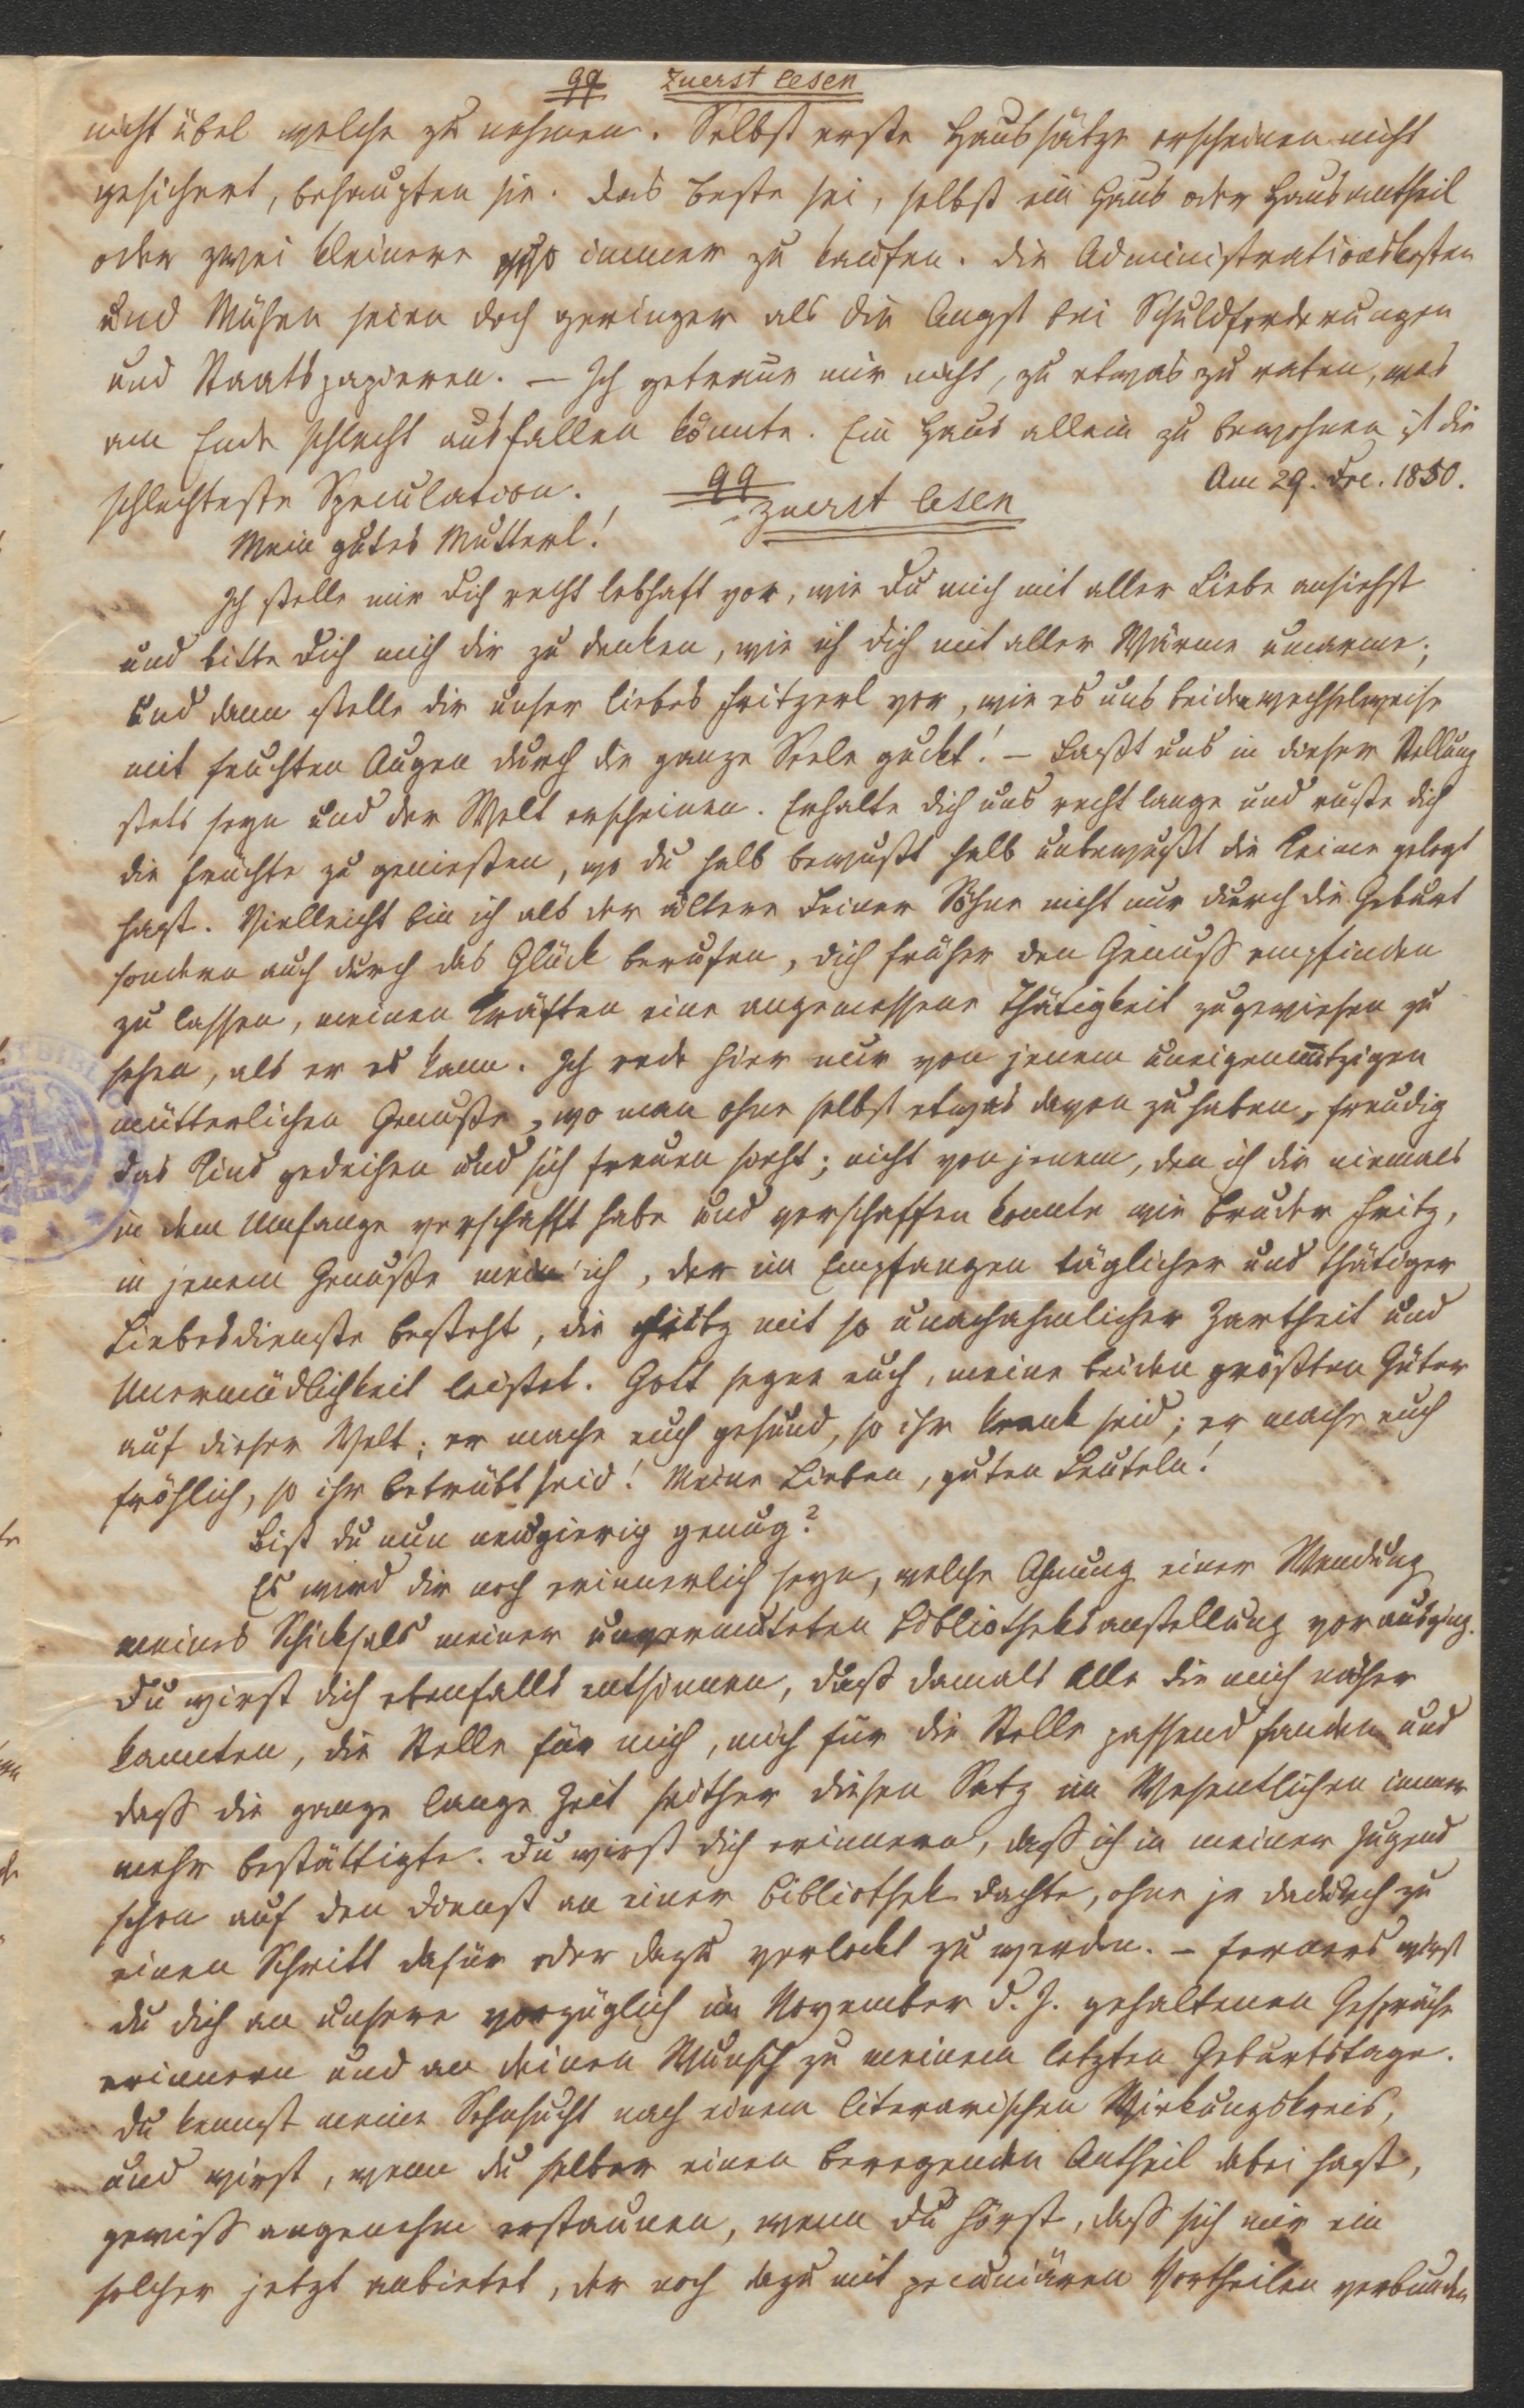 99 Zuerst lesen
nicht übel welche zu nehmen. Selbst erste Haussätze erscheinen nicht
gesichert, behaupten sie. Das Beste sei, selbst ein Haus oder Hausantheil
oder zwei kleinere immer zu kaufen. Die Administrationskosten
und Mühen seien doch geringer als die Angst bei Schuldforderungen
und Staatspapieren. — Ich getraue mir nicht, zu etwas zu raten, was
am Ende schlecht ausfallen könnte. Ein Haus allein zu bewohnen ist die
schlechteste Speculation.
99 Zuerst lesen
Am 29. Dec. 1850.
Mein gutes Mutterl!
Ich stelle mir Dich recht lebhaft vor, wie Du mich mit aller Liebe ansiehst
und bitte Dich mich dir zu denken, wie ich Dich mit aller Wärme umarme;
und dann stelle dir unser liebes Fritzerl vor, wie es uns beide wechselweise
mit feuchten Augen durch die ganze Seele guckt! — Laßt uns in dieser Stellung
stets seyn und der Welt erscheinen. Erhalte dich uns recht lange und rüste dich
die Früchte zu genießen, wo du halb bewußt halb unbewußt die Keime gelegt
hast. Vielleicht bin ich als der ältere Deiner Söhne nicht nur durch die Geburt
sondern auch durch das Glück berufen, dich früher den Genuß empfinden
zu lassen, meinen Kräften eine angemessene Thätigkeit zugewiesen zu
sehen, als er es kann. Ich rede hier nur von jenem uneigennützigen
mütterlichen Genuße, wo man ohne selbst etwas davon zu haben, freudig
das Kind gedeihen und sich freuen sieht; nicht von jenem, den ich dir niemals
in dem Umfange verschafft habe und verschaffen konnte wie Bruder Fritz,
in jenem Genuße mein' ich, der im Empfangen täglicher und thätiger
Liebesdienste besteht, die Fritz mit so unnachahmlicher Zartheit und
Unermüdlichkeit leistet. Gott segne euch, meine beiden größten Güter
auf dieser Welt; er mache euch gesund, so ihr krank seid; er mache euch
fröhlich, so ihr betrübt seid! Meine Lieben, guten Leuteln!
Bist du nun neugierig genug?
Es wird dir noch erinnerlich seyn, welche Ahnung einer Wendung
meines Schicksals meiner unvermuteten Bibliotheksanstellung vorausging.
Du wirst dich ebenfalls entsinnen, daß damals Alle die mich näher
kannten, die Stelle für mich, mich für die Stelle passend fanden und
daß die ganze lange Zeit seither diesen Satz im Wesentlichen immer
mehr bestättigte. Du wirst dich erinnern, daß ich in meiner Jugend
schon auf den Dienst an einer Bibliothek dachte, ohne je dadurch zu
einen Schritt dafür oder dazu verlockt zu werden. — Ferners wirst
du dich an unsere vorzüglich im November d. J. gehaltenen Gespräche
erinnern und an deinen Wunsch zu meinem letzten Geburtstage.
Du kennst meine Sehnsucht nach einem literarischen Wirkungskreis,
und wirst, wenn du selber einen beregenden Antheil dabei hast,
gewiß angenehm erstaunen, wenn Du hörst, daß sich mir ein
solcher jetzt anbietet, der noch dazu mit pecuniären Vortheilen verbunden